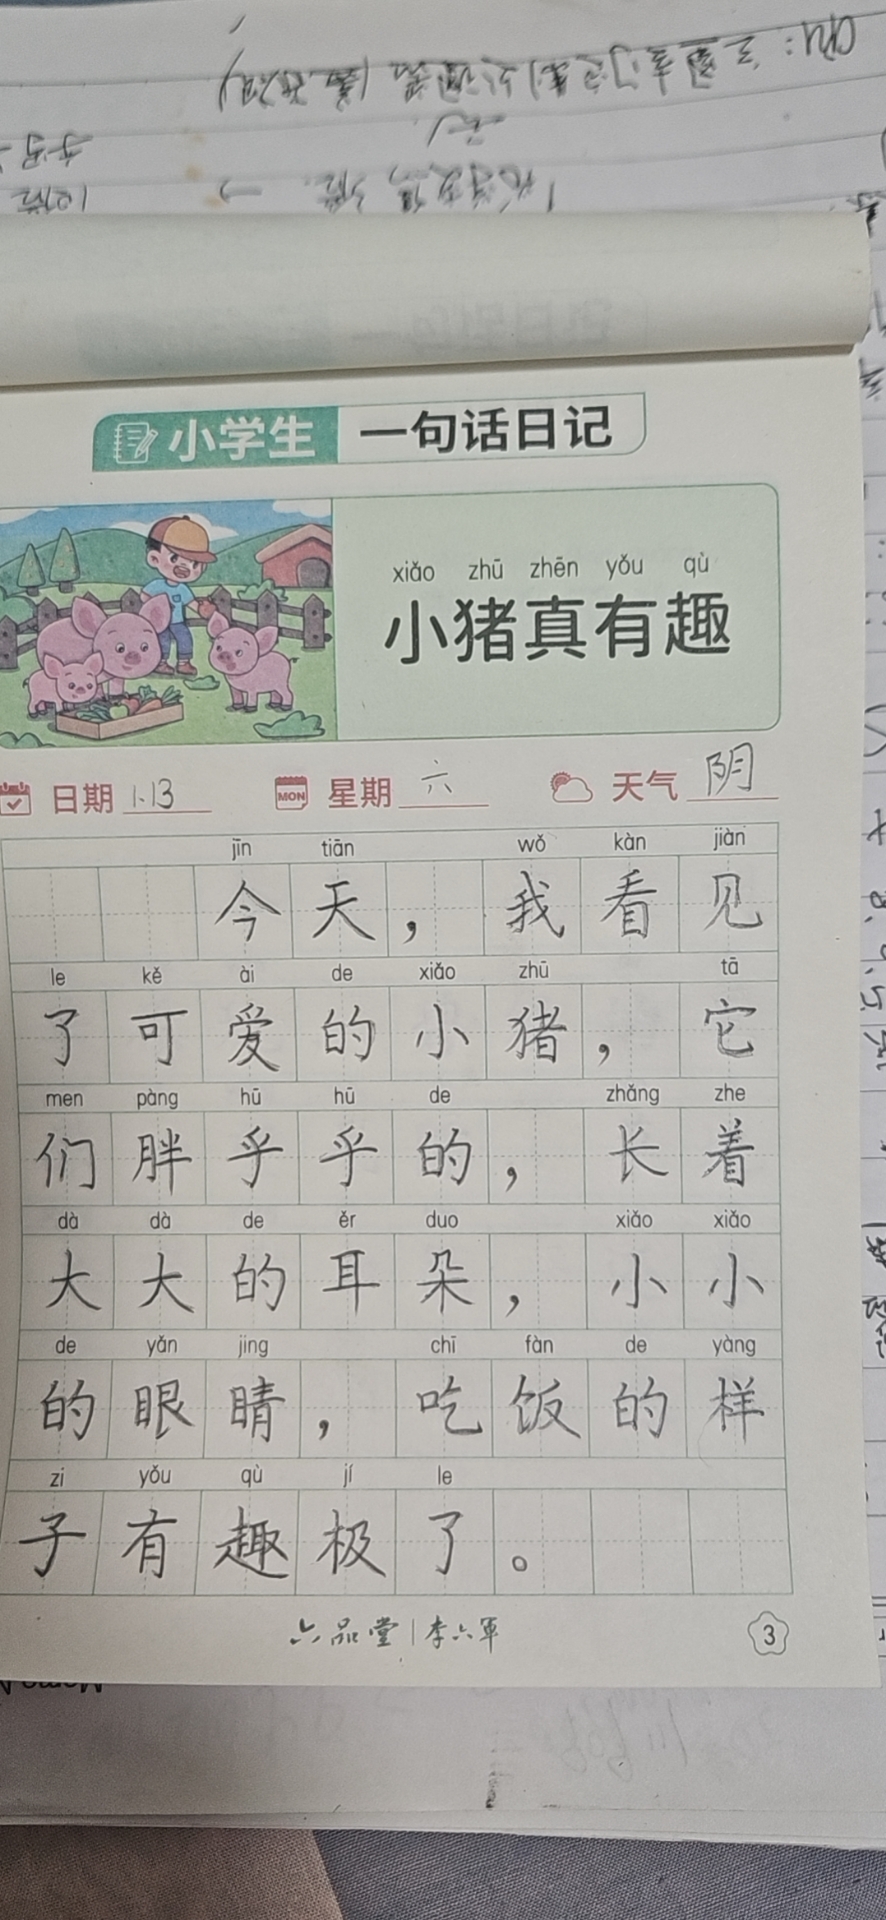 小学生 一句话日记
xiǎo zhū zhēn yǒu qù
小猪真有趣
日期 1.13 MON 星期 六 天气 阴
jīn tiān wǒ kàn jiàn
今天，我看见
le kě ài de xiǎo zhū tā
了可爱的小猪，它
men pàng hū hū de zhǎng zhe
们胖乎乎的，长着
dà dà de ěr duo xiǎo xiǎo
大大的耳朵，小小
de yǎn jing chī fàn de yàng
的眼睛，吃饭的样
zi yǒu qù jí le
子有趣极了。
六品堂|李六军
3